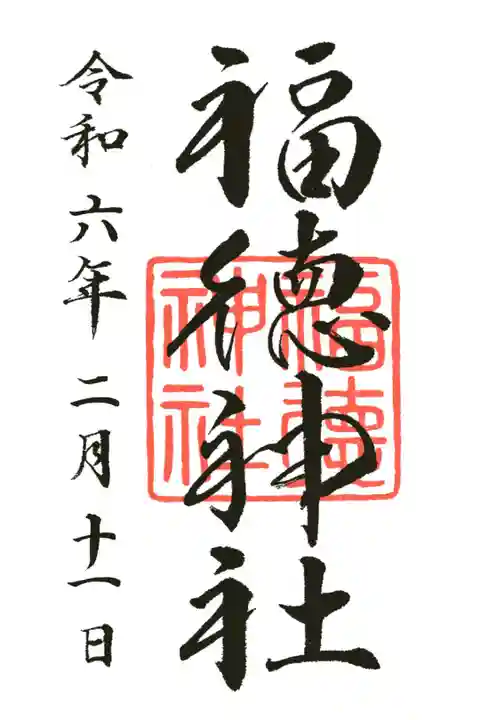 福徳神社
福徳神社
令和六年二月十一日